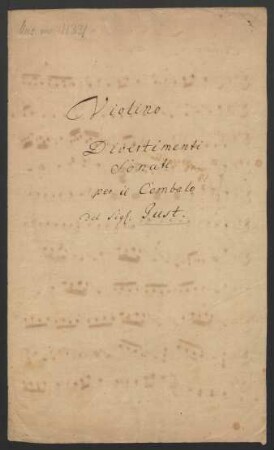 Mus. ms. 11321
Violino
Divertimenti
Sonati
per il Cembalo
del Sigl. Just.